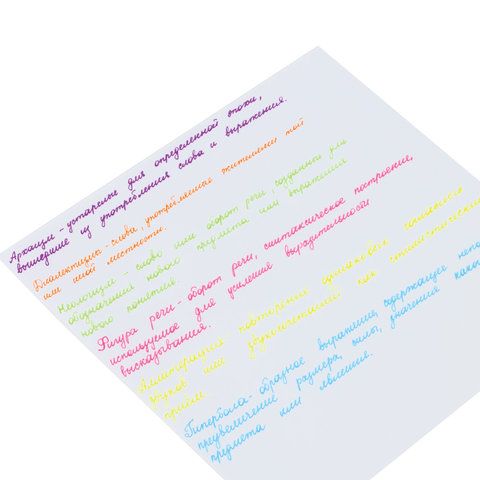 Архаизм - устарелые для определенной эпохи,
вышедшие из употребления слова и выражения.
Диалектизм - слова, употребляемые жителями той
или иной местности.
Неологизм - слово или оборот речи, созданный для
обозначения нового предмета или выражения
нового понятия.
Фигура речи - оборот речи, синтаксическое построение,
используемое для усиления выразительности
высказывания.
Аллитерация повторение одинаковых согласных
звуков или звукосочетаний как стилистический
прием.
Гипербола - образное выражение, содержащее непо
преувеличение размера, силы, значения како
предмета или явления.